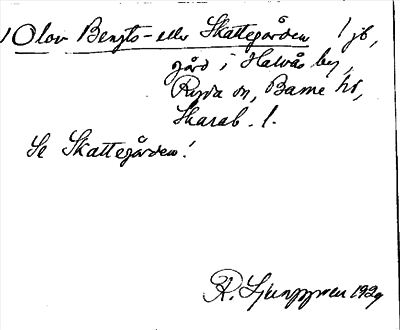 Olov Bengts- eller Skattegården 1 jb,
gård i Halvås by,
Ryda sn, Barne hd,
Skarab. l.
Se Skattegården!
R. Ljunggren 1929